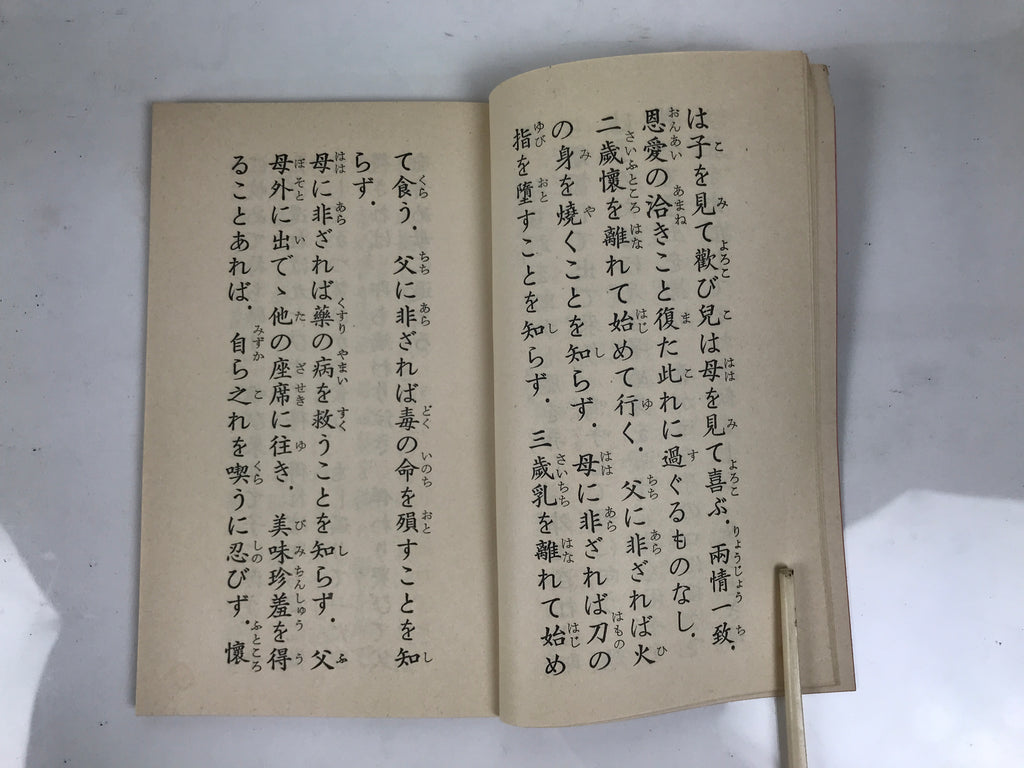 は子を見て歡び兒は母を見て喜ぶ。兩情一致。
恩愛の洽きこと復た此れに過ぐるものなし。
二歳懷を離れて始めて行く。父に非ざれば火
の身を燒くことを知らず。母に非ざれば刀の
指を墮すことを知らず。三歳乳を離れて始め
て食う。父に非ざれば毒の命を殞すことを知
らず。
母に非ざれば藥の病を救うことを知らず。父
母外に出でゝ他の座席に往き。美味珍羞を得
ることあれば。自ら之れを喫うに忍びず。懷